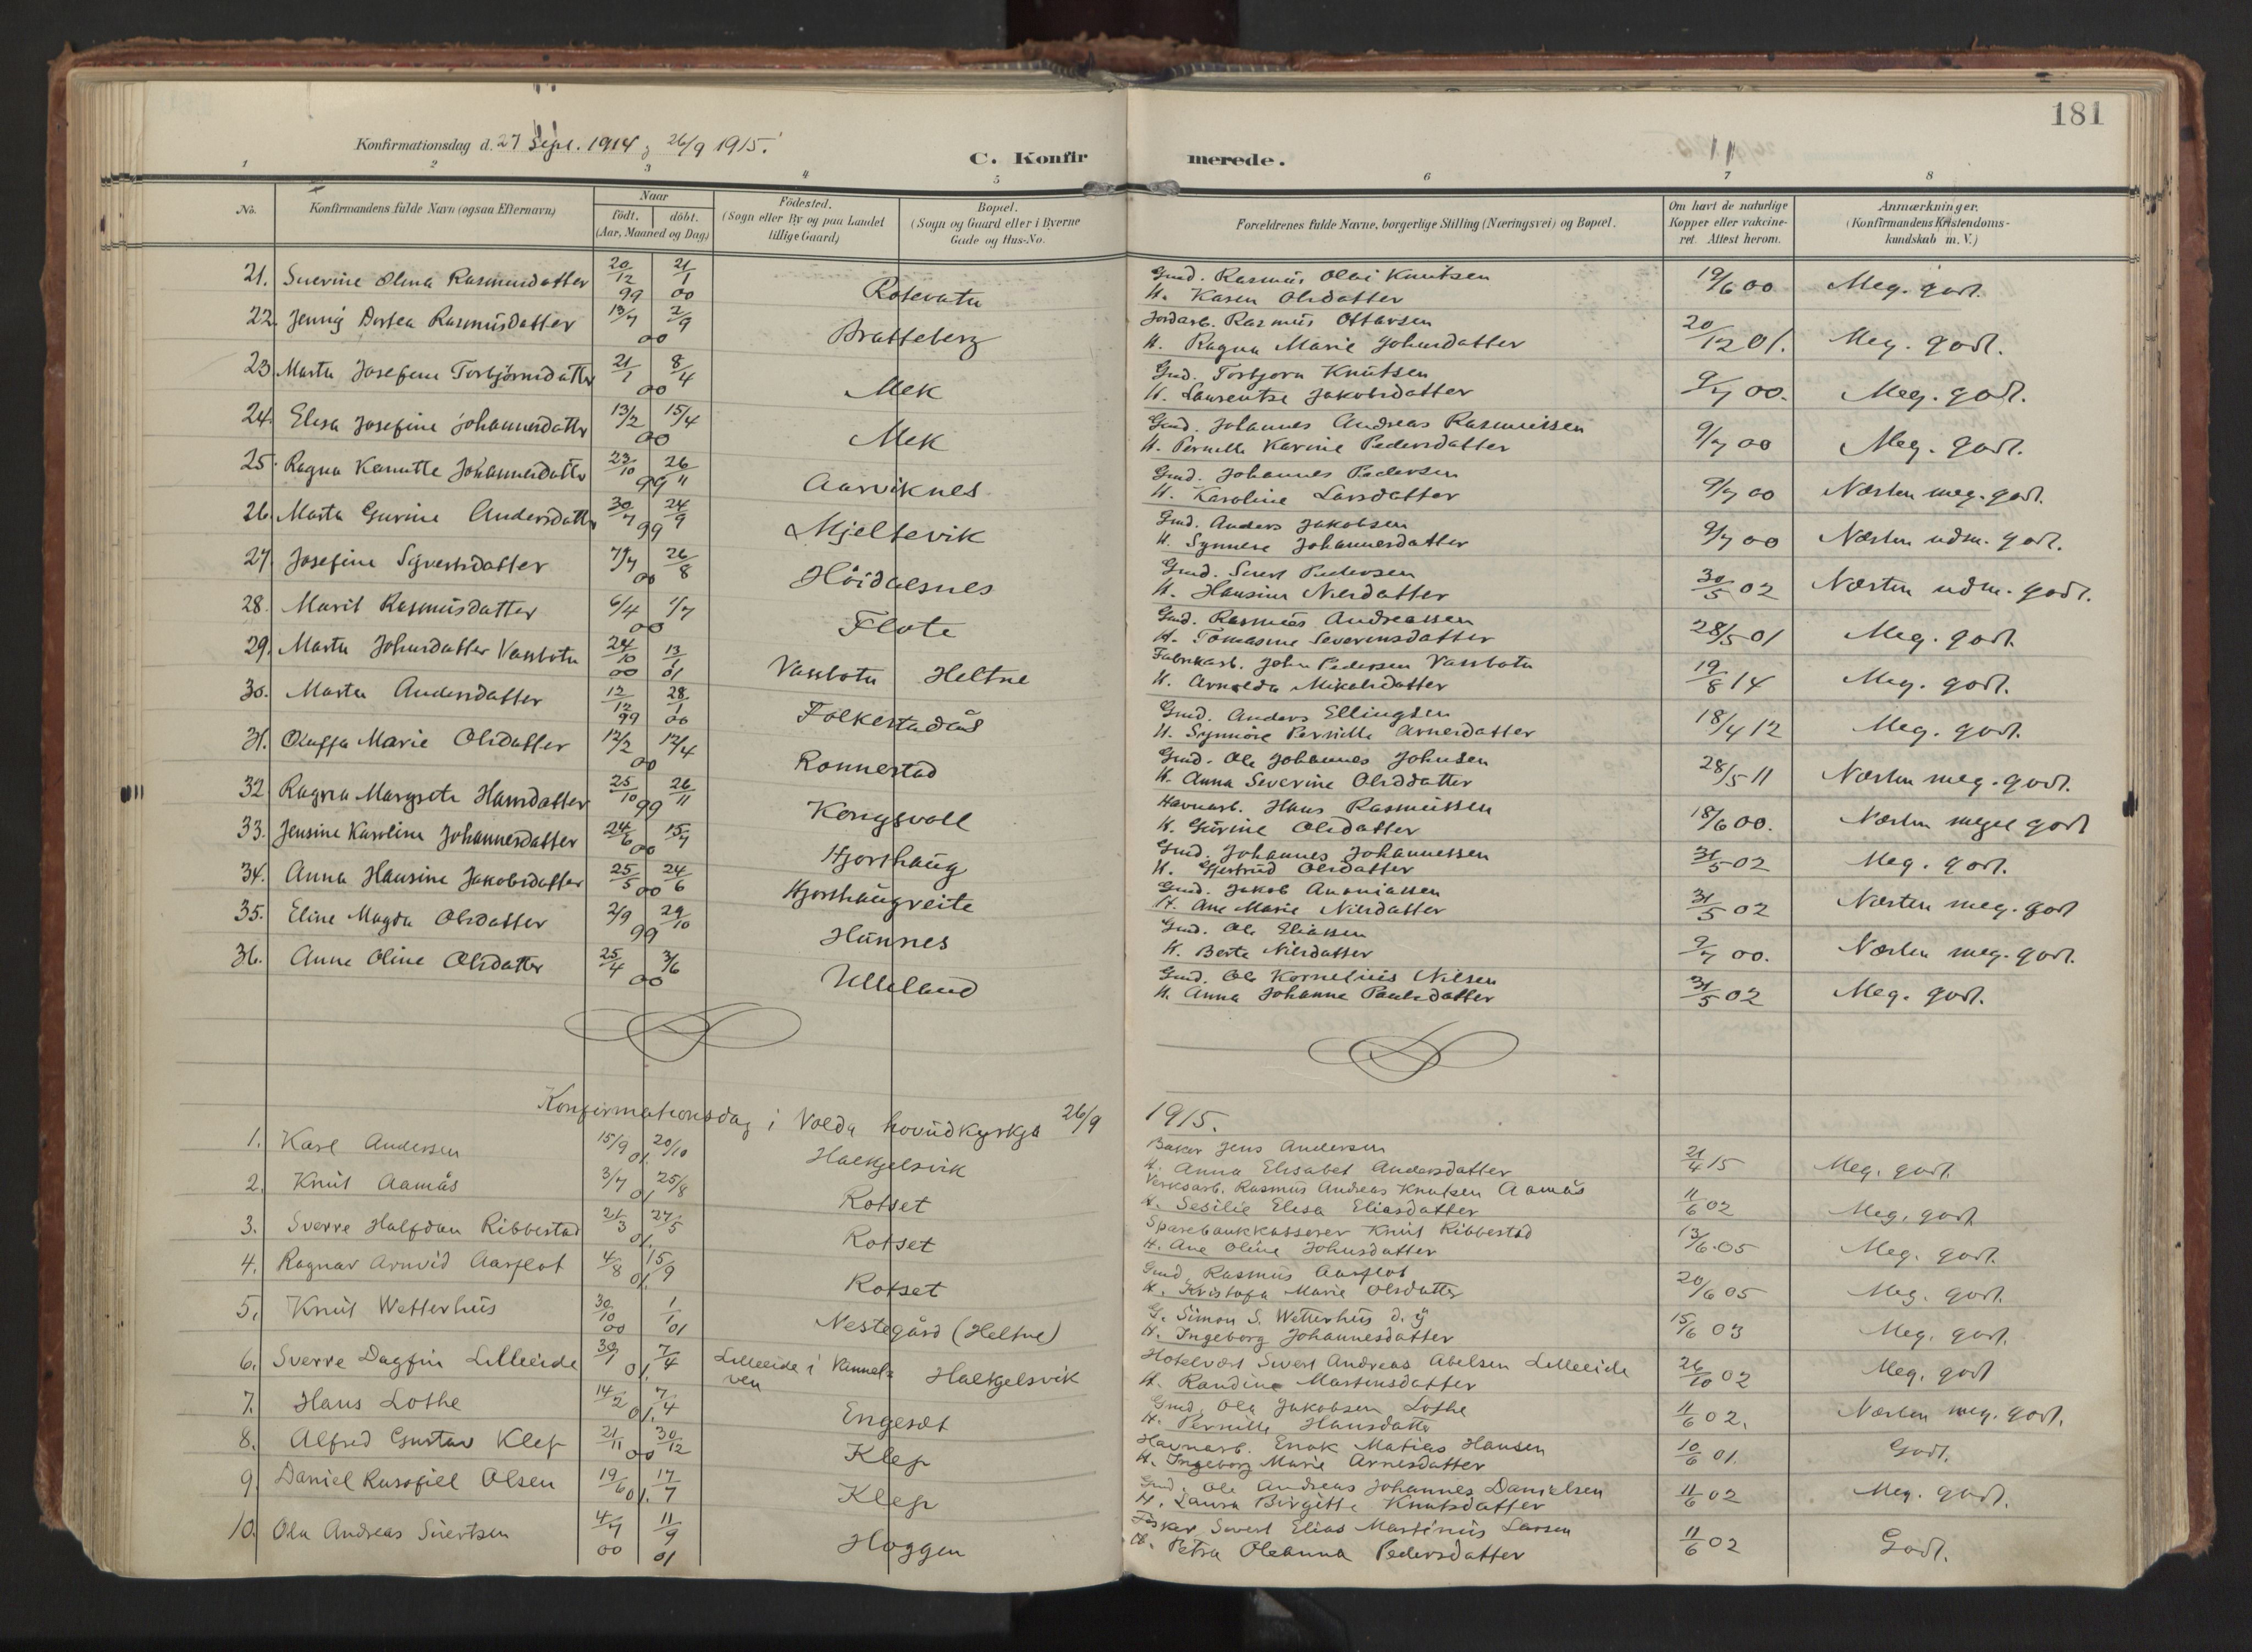 181
Konfirmationsdag d. 27 Sept. 1914, 26/9 1915.
C. Konfirmerede.
1 2 3 4 5 6 7 8
No.
Konfirmandens fulde Navn (ogsaa Efternavn)
Naar
födt. döbt.
(Aar, Maaned og Dag)
Födested.
(Sogn eller By og paa Landet
tillige Gaard)
Bopæl.
(Sogn og Gaard eller i Byerne
Gade og Hus-No.
Forældrenes fulde Navne, borgerlige Stilling (Næringsvei) og Bopæl.
Om havt de naturlige
Kopper eller vakcine-
ret. Attest herom.
Anmærkninger.
(Konfirmandens Kristendoms-
kundskab m. V.)
21. Severine Olina Rasmusdatter 20/12 99 21/1 00 Rotevatn Gmd. Rasmus Olai Knutsen 19/6 00 Meg. godt.
H. Karen Olsdatter
22. Jenny Dortea Rasmusdatter 13/7 2/9 00 Bratteberg Jordarb. Rasmus Ottarsen 20/12 01. Meg. godt.
H. Ragna Marie Johnsdatter
23 Marta Josefine Torbjörnsdatter 21/1 8/4 00 Mek Gmd. Torbjörn Knutsen 9/7 00. Meg. godt.
H. Laurentse Jakobsdatter
24. Elisa Josefine Johannesdatter 13/2 15/4 00 Mek Gmd. Johannes Andreas Rasmussen 9/7 00 Meg. godt.
H. Pernille Karine Pedersdatter
25. Ragna Kanutte Johannesdatter 23/10 26/11 99 Aarviknes Gmd. Johannes Pedersen 9/7 00 Næsten meg. godt.
H. Karoline Larsdatter
26. Marta Gurine Andersdatter 30/7 24/9 99 Mjeltevik Gmd. Anders Jakobsen 9/7 00 Næsten udm. godt.
H. Synnøve Johannesdatter
27. Josefine Syvertsdatter 7/7 26/8 00 Höidalsnes Gmd. Sivert Pedersen 30/5 02 Næsten udm. godt.
H. Hansine Nilsdatter
28. Marit Rasmusdatter 6/4 1/7 00 Flote Gmd. Rasmus Andreassen 28/5 01 Meg. godt.
H. Tomasine Severinsdatter
29. Marta Johnsdatter Vassbotn 24/10 00 13/1 01 Vassbotn Heltne Fabrikarb. John Pedersen Vassbotn 19/8 14 Meg. godt.
H. Arnolda Mikalsdatter
30. Marta Andersdatter 12/12 99 28/1 00 Folkestadås Gmd. Anders Ellingsen 18/4 12 Meg. godt.
H. Synnöve Pernille Arnesdatter
31. Oluffa Marie Olsdatter 12/2 12/4 00 Ronnestad Gmd. Ole Johannes Johnsen 28/5 11 Næsten meg. godt.
H. Anna Severine Olsdatter
32 Ragna Margrete Hansdatter 25/10 26/11 99 Kongsvoll Havnarb. Hans Rasmussen 18/6 00. Næsten meget godt
H. Gurine Olsdatter
33. Jensine Karoline Johannesdatter 24/6 15/7 00 Hjorthaug Gmd. Johannes Johannessen 31/5 02 Meg. godt.
H. Gjertrud Olsdatter
34. Anna Hansine Jakobsdatter 25/5 24/6 00 Hjorthaugreite Gmd. Jakob Ananiassen 31/5 02 Næsten meg. godt
H. Ane Marie Nilsdatter
35. Eline Magda Olsdatter 2/9 29/10 99 Hunnes Gmd. Ole Eliassen 9/7 00. Næsten meg. godt.
H. Berte Nilsdatter
36. Anne Oline Olsdatter 25/4 3/6 00 Ulleland Gmd. Ole Kornelius Nilsen 31/5 02 Meg. godt.
H. Anna Johanne Paulsdatter
Konfirmationsdag i Volda hovudkyrkja 26/9 1915.
1. Karl Andersen 15/9 20/10 01. Halkjelsvik Baker Jens Andersen 21/4 15 Meg. godt.
H. Anna Elisabet Andersdatter
2. Knut Aamås 3/7 25/8 01 Rotset Verksarb. Rasmus Andreas Knutsen Aamås 11/6 02 Meg. godt
H. Sesilie Elisa Eliasdatter
3. Sverre Halfdan Ribbestad 21/3 27/5 01. Rotset Sparebankkasserer Knut Ribbestad 13/6 05 Meg. godt.
H. Ane Oline Johnsdatter
4. Ragnar Arnvid Aarflot 4/8 15/9 01. Rotset Gmd. Rasmus Aarflot 20/6 05 Meg. godt.
H. Kristofa Marie Olsdatter
5. Knut Wetterhus 30/10 00 1/1 01 Nestegård (Heltne) G. Simon S. Wetterhus d. y 15/6 03 Meg. godt.
H. Ingeborg Johannesdatter
6. Sverre Dagfin Lilleeide 30/1 7/4 01. Lilleeide i Vannel= Halkjelsvik Hotelvært Sivert Andreas Abelsen Lilleeide 26/10 02 Meg. godt
ven H. Randine Martinsdatter
7. Hans Lothe 14/2 7/4 01. Engeset Gmd. Ole Jakobsen Lothe 11/6 02. Næsten meg. godt.
H. Pernille Hansdatter
8. Alfred Gustav Klep 21/11 30/12 00 Klep Havnarb. Enok Matias Hansen 10/6 01. Godt.
H. Ingeborg Marie Arnesdatter
9. Daniel Rusofiel Olsen 19/6 17/7 01. Klep Gmd. Ole Andreas Johannes Danielsen 11/6 02 Meg. godt.
H. Laura Birgitte Knutsdatter
10. Ola Andreas Sivertsen 4/7 00 11/9 01 Hoggen Fisker Sivert Elias Martinus Larsen 11/6 02 Godt.
H. Petra Oleanna Pedersdatter